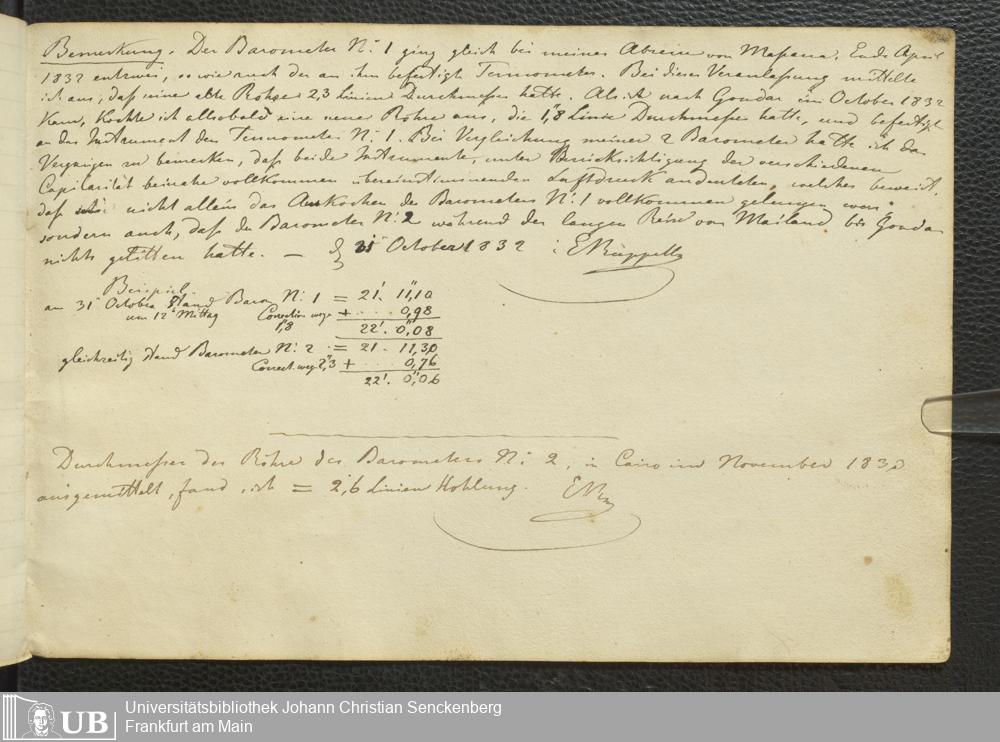 Bemerkung. Der Barometer N: 1 ging gleich bei meiner Abreise von Massaua, Ende April
1832 entzwei, so wie auch der an ihm befestigte Termometer. Bei dieser Veranlaßung mittelte
ich aus, daß seine alte Röhre 2,3 Linien Durchmesser hatte. Als ich nach Gondar im October 1832
Kam, Kochte ich allsobald eine neue Röhre aus, die 1,8 Linie Durchmesser hatte, und befestigte
an das Instrument den Termometer N: 1. Bei Vergleichung meiner 2 Barometer hatte ich das
Vergnügen zu bemerken, daß beide Instrumente, unter Berücksichtigung der verschiedenen
Capilarität beinahe vollkommen übereinstimmenden Luftdruck andeuteten, welches beweist,
daß nicht allein das Auskochen des Barometers N: 1 vollkommen gelungen war
sondern auch, daß der Barometer N: 2 während der langen Reise von Mailand bis Gondar
nichts gelitten hatte. — 31 October 1832 : E Rüppell
Beispiel
am 31 October Stand Baro N: 1 = 21'. 11",10
um 12 Mittag Correction weg. 1",8 + .... 0,98
22'. 0",08
gleichzeitig stand Barometer N: 2 = 21 - 11,30
Correct. weg 2",3 + .... 0,76
22'. 0",06
Durchmesser der Röhre des Barometers N: 2, in Cairo im November 183
ausgemittelt, fand ich = 2,6 Linien Hohlung. ERü
Universitätsbibliothek Johann Christian Senckenberg
Frankfurt am Main
UB